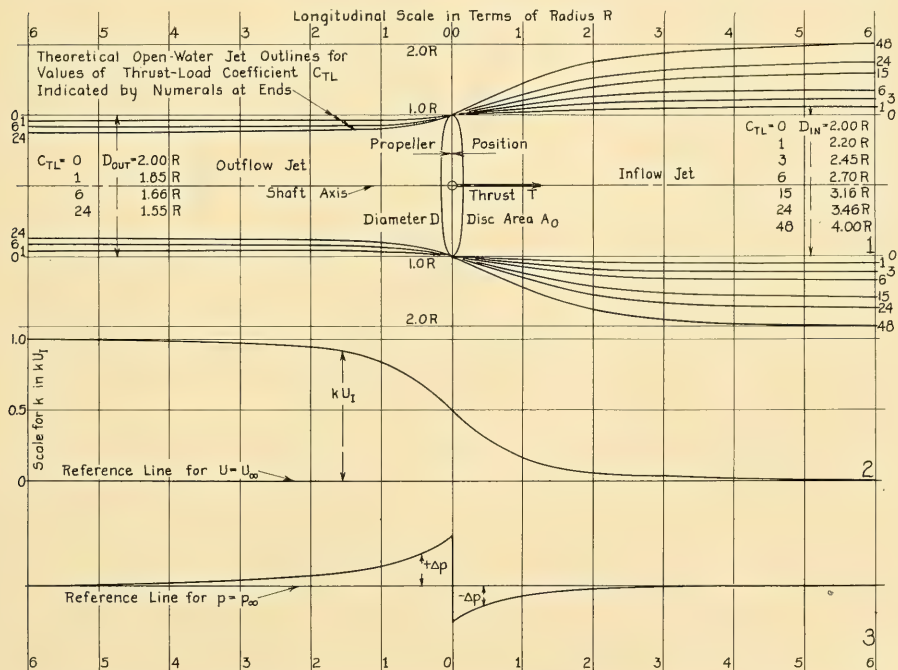 Longitudinal Scale in Terms of Radius R
6 5 4 3 2 1 0 0 1 2 3 4 5 6
Theoretical Open-Water Jet Outlines for
Values of Thrust-Load Coefficient C_TL
Indicated by Numerals at Ends
2.0R
48
24
15
6
3
1
0
0 1
6
24
1.0R
Propeller Position
C_TL= 0 D_OUT=2.00 R
1 1.85 R
6 1.66 R
24 1.55 R
Outflow Jet
Shaft Axis
Thrust T
Inflow Jet
C_TL=0 D_IN=2.00 R
1 2.20 R
3 2.45 R
6 2.70 R
15 3.16 R
24 3.46 R
48 4.00 R
Diameter D Disc Area A_0
24
6
0 1
1.0R
1
1 0
3
6
15
24
48
2.0R
1.0
0.5
0
Scale for k in kU_I
kU_I
Reference Line for U=U_∞
2
+Δp
-Δp
Reference Line for p=p_∞
3
6 5 4 3 2 1 0 0 1 2 3 4 5 6